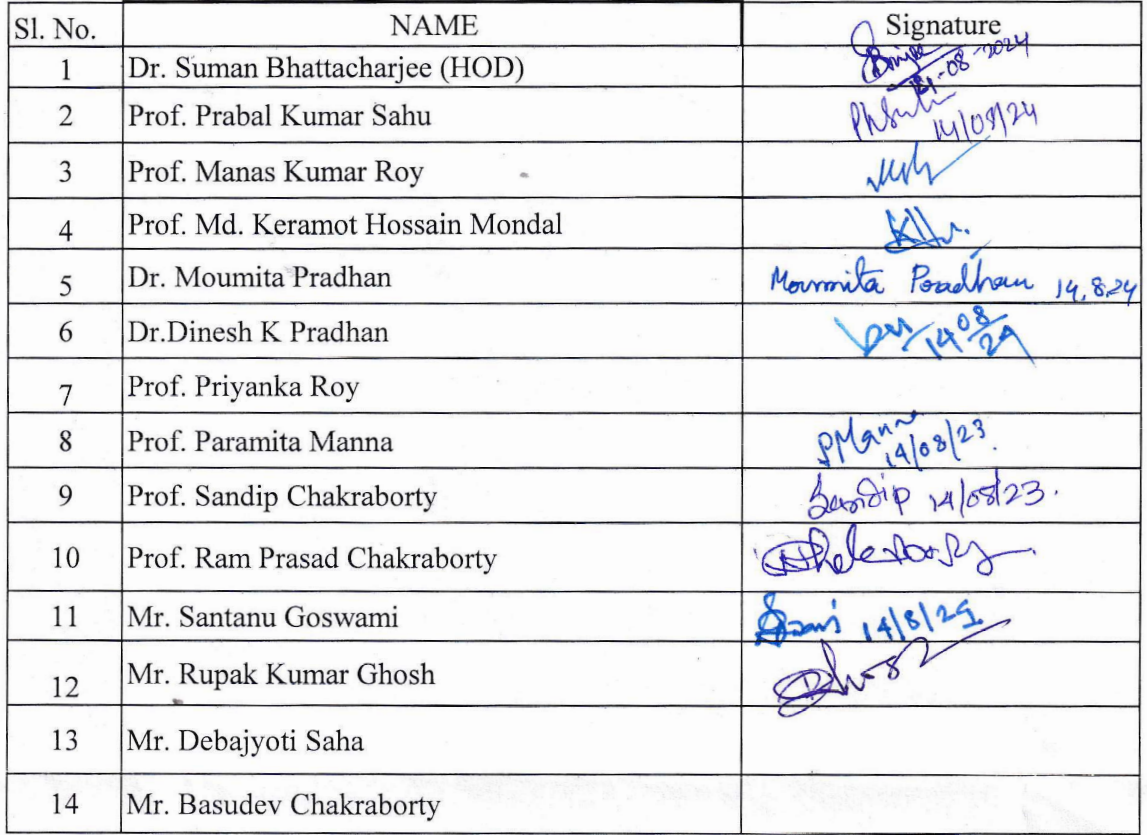 Sl. No. NAME Signature
1 Dr. Suman Bhattacharjee (HOD) -08-2024
2 Prof. Prabal Kumar Sahu PKSahu 14/08/24
3 Prof. Manas Kumar Roy
4 Prof. Md. Keramot Hossain Mondal
5 Dr. Moumita Pradhan Moumita Pradhan 14.8.24
6 Dr.Dinesh K Pradhan 14/08/24
7 Prof. Priyanka Roy
8 Prof. Paramita Manna PManna 14/08/23.
9 Prof. Sandip Chakraborty Sandip 14/08/23.
10 Prof. Ram Prasad Chakraborty
11 Mr. Santanu Goswami 14/8/24
12 Mr. Rupak Kumar Ghosh
13 Mr. Debajyoti Saha
14 Mr. Basudev Chakraborty